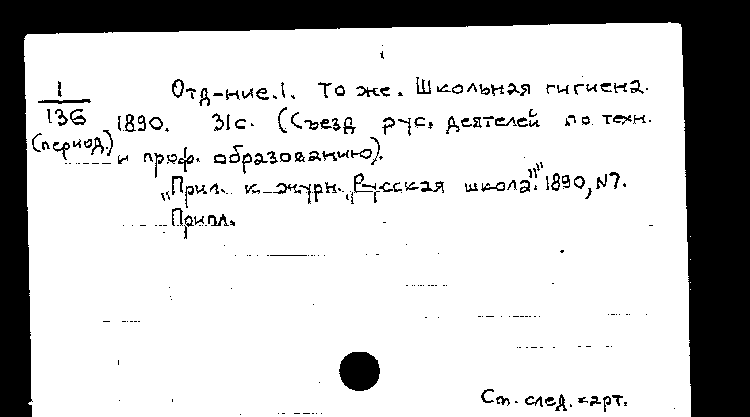 1
136
(период.)
Отд-ние.1. То же. Школьная гигиена.
1890. 31с. (Съезд рус. деятелей по техн.
и проф. образованию).
„Прил. к журн. „Русская школа"." 1890, N7.
Припл.
См. след. карт.